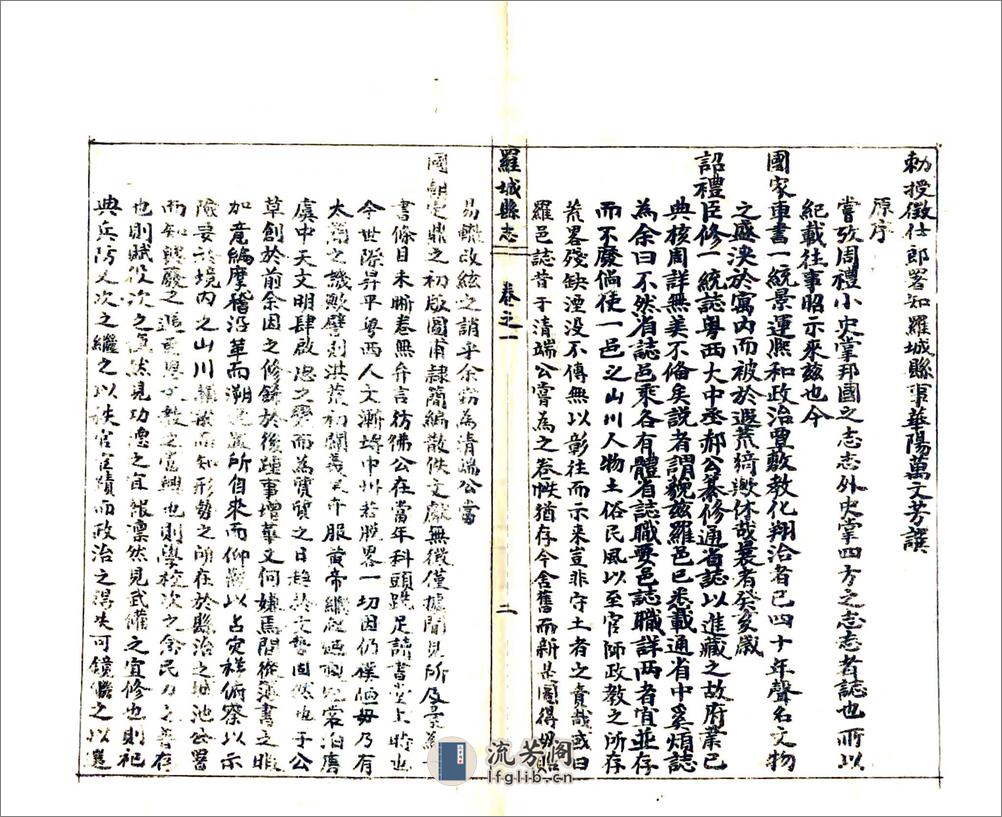 勅授徵仕郎署知羅城縣事華陽萬文芳譔
原序
嘗攷周禮小史掌邦國之志志外史掌四方之志志者誌也所以
紀載往事昭示來茲也今
國家車書一統景運熙和政治覃敷教化翔洽者已四十年聲名文物
之盛浹於寓內而被於遐荒猗歟休哉曩者癸亥歲
詔禮臣修一統誌粵西大中丞郝公纂修通省誌以進藏之故府業已
典核周詳無美不俻矣說者謂貌茲羅邑已悉載通省中奚煩誌
為余曰不然省誌邑乘各有體省誌職要邑誌職詳兩者宜並存
而不廢倘使一邑之山川人物土俗民風以至官師政教之所存
荒畧殘缺湮沒不傳無以彰往而示來豈非守土者之責哉或曰
羅邑誌昔于清端公嘗為之卷帙猶存今舍舊而新是圖得毋貽
羅城縣志 卷之一 二
易轍改絃之誚乎余曰為清端公當
國朝定鼎之初版圖甫隸簡編散佚文獻無徵僅據聞見所及
書條目未晰卷無弁言彷彿公在當年科頭跣足讀書堂上時也
今世際昇平粵西人文漸埒中州若脫畧一切因仍樸陋毋乃有
太簡之譏歟譬剖洪荒初闢羲皇卉服黃帝繼
虞中天文明肆啟忠之變而為質質之日趨於文勢固然也于公
草創於前余因之修飾於後踵事增華又何嫌焉間從簿書之暇
加意編摩稽沿革而溯建置所自來而仰觀以占災祥俯察以示
險要於境內之山川
而知形勢之所在於縣治之城池公署
而知興廢之
也則學校次之念民力之普存
也則賦役次之
然見功德之宜報凛然見武備之宜修也則祀
典兵防又次之繼之以秩官宦蹟而政治之得失可鏡繼之以選
流芳阁
lfglib.cn